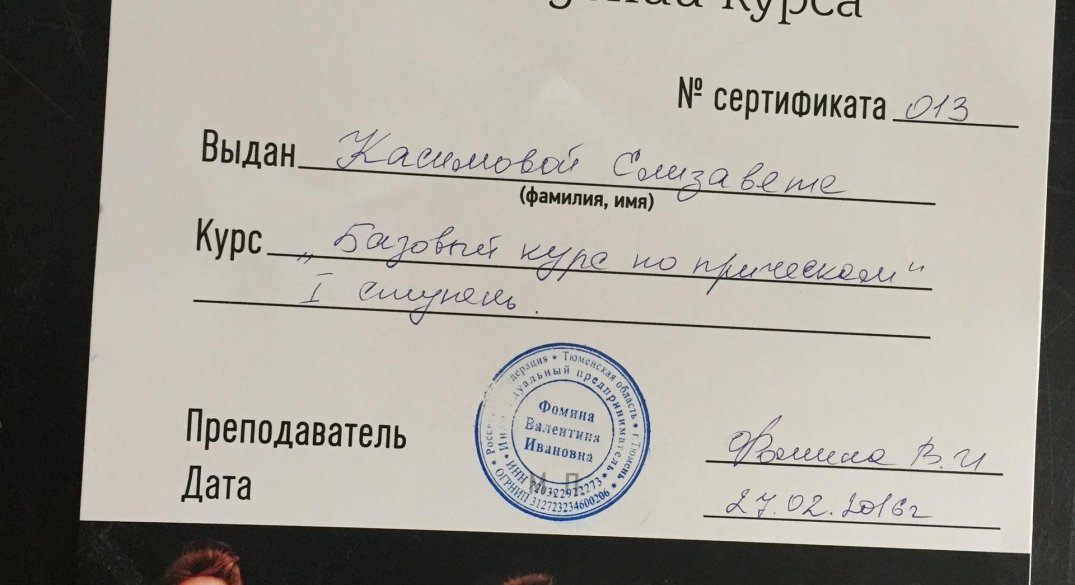 курса
№ сертификата 013
Выдан Касимовой Елизавете
(фамилия, имя)
Курс „Базовый курс по прическам“
I ступень.
Российская Федерация * Тюменская область * г.Тюмень *
Индивидуальный предприниматель *
Фомина
Валентина
Ивановна
М.П.
ОГРНИП 312723234600206 *
Преподаватель Фомина В.И
Дата 27.02.2016г